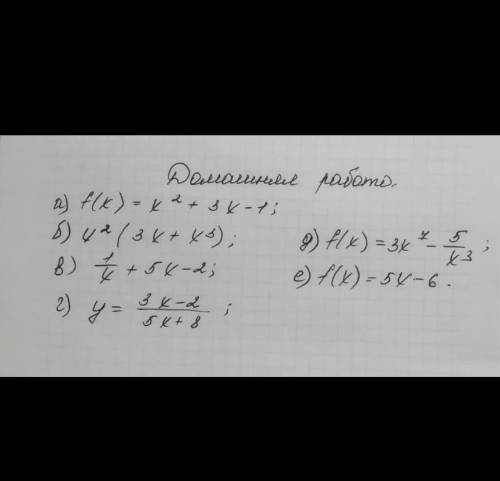 Домашняя работа.
а) f(x) = x² + 3x - 1;
б) x² (3x + x³);
в) 1/x + 5x - 2;
г) y = (3x - 2)/(5x + 8);
д) f(x) = 3x⁷ - 5/x³;
е) f(x) = 5x - 6.